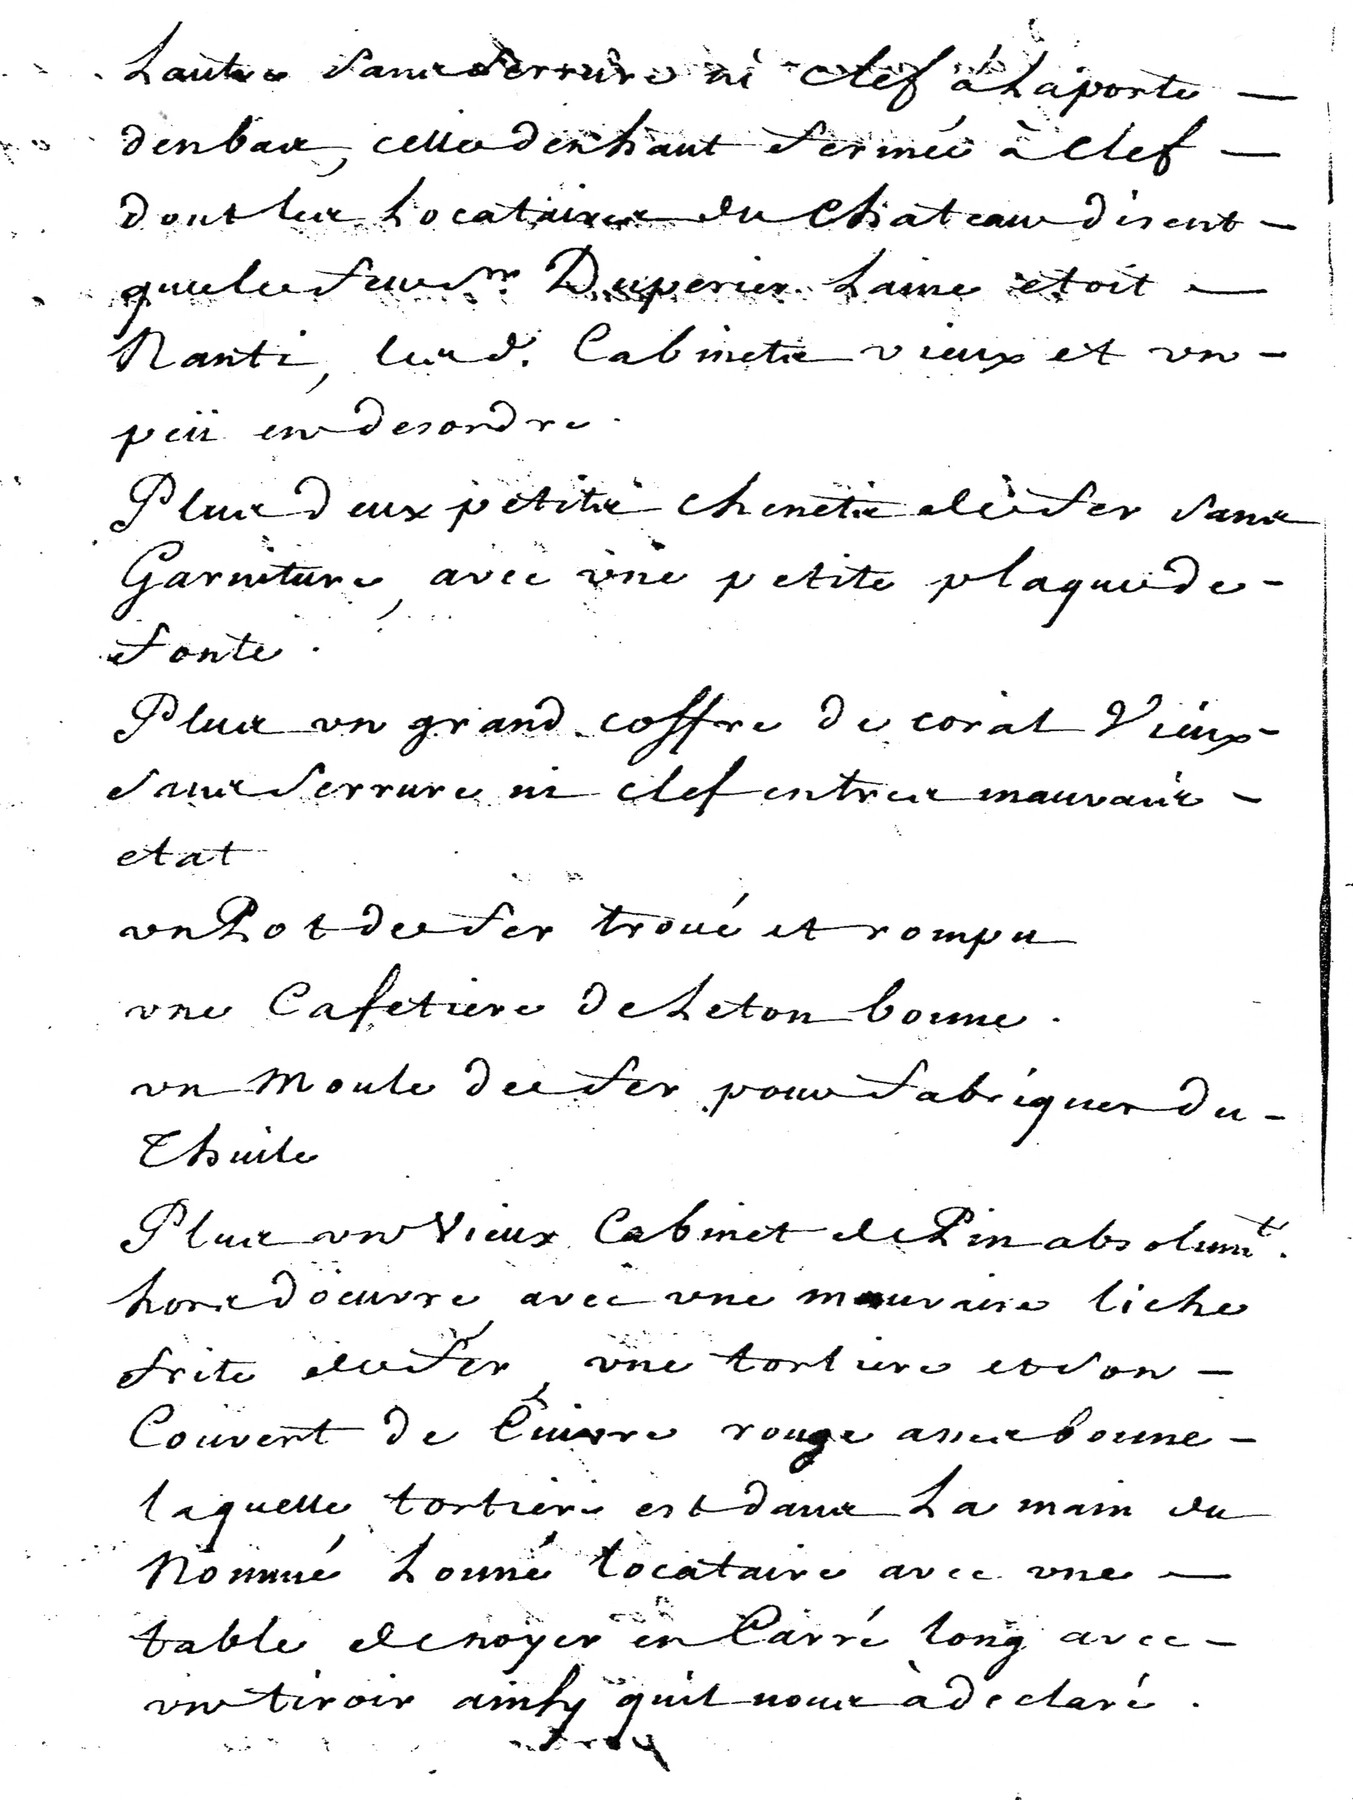 Lautre sans serrure ni clef à Laporte —
denbas, celle denhaut fermée à clef —
dont les Locataires du Chateau disent —
que le feu Sr. Duperier Laine etoit —
Nanti, les d. Cabinets vieux et un —
peü en desordre.
Plus deux petits chenets de fer sans
Garniture, avec une petite plaque de —
fonte.
Plus un grand coffre de coral Vieux —
sans serrure ni clef en tres mauvais —
etat
un Pot de fer troué et rompu
une Cafetiere de Leton bonne.
un Moule de fer pour fabriquer du —
Thuile
Plus un Vieux Cabinet de Pin absolumt.
hors d'oeuvre avec une mauvaise liche
frite de fer, une tortiere et son —
Couvert de Cuivre rouge asses bonne —
laquelle tortiere est dans La main du
Nommé Louné locataire avec une —
table de noyer en Carré long avec —
un tiroir ainsy quil nous à declaré.